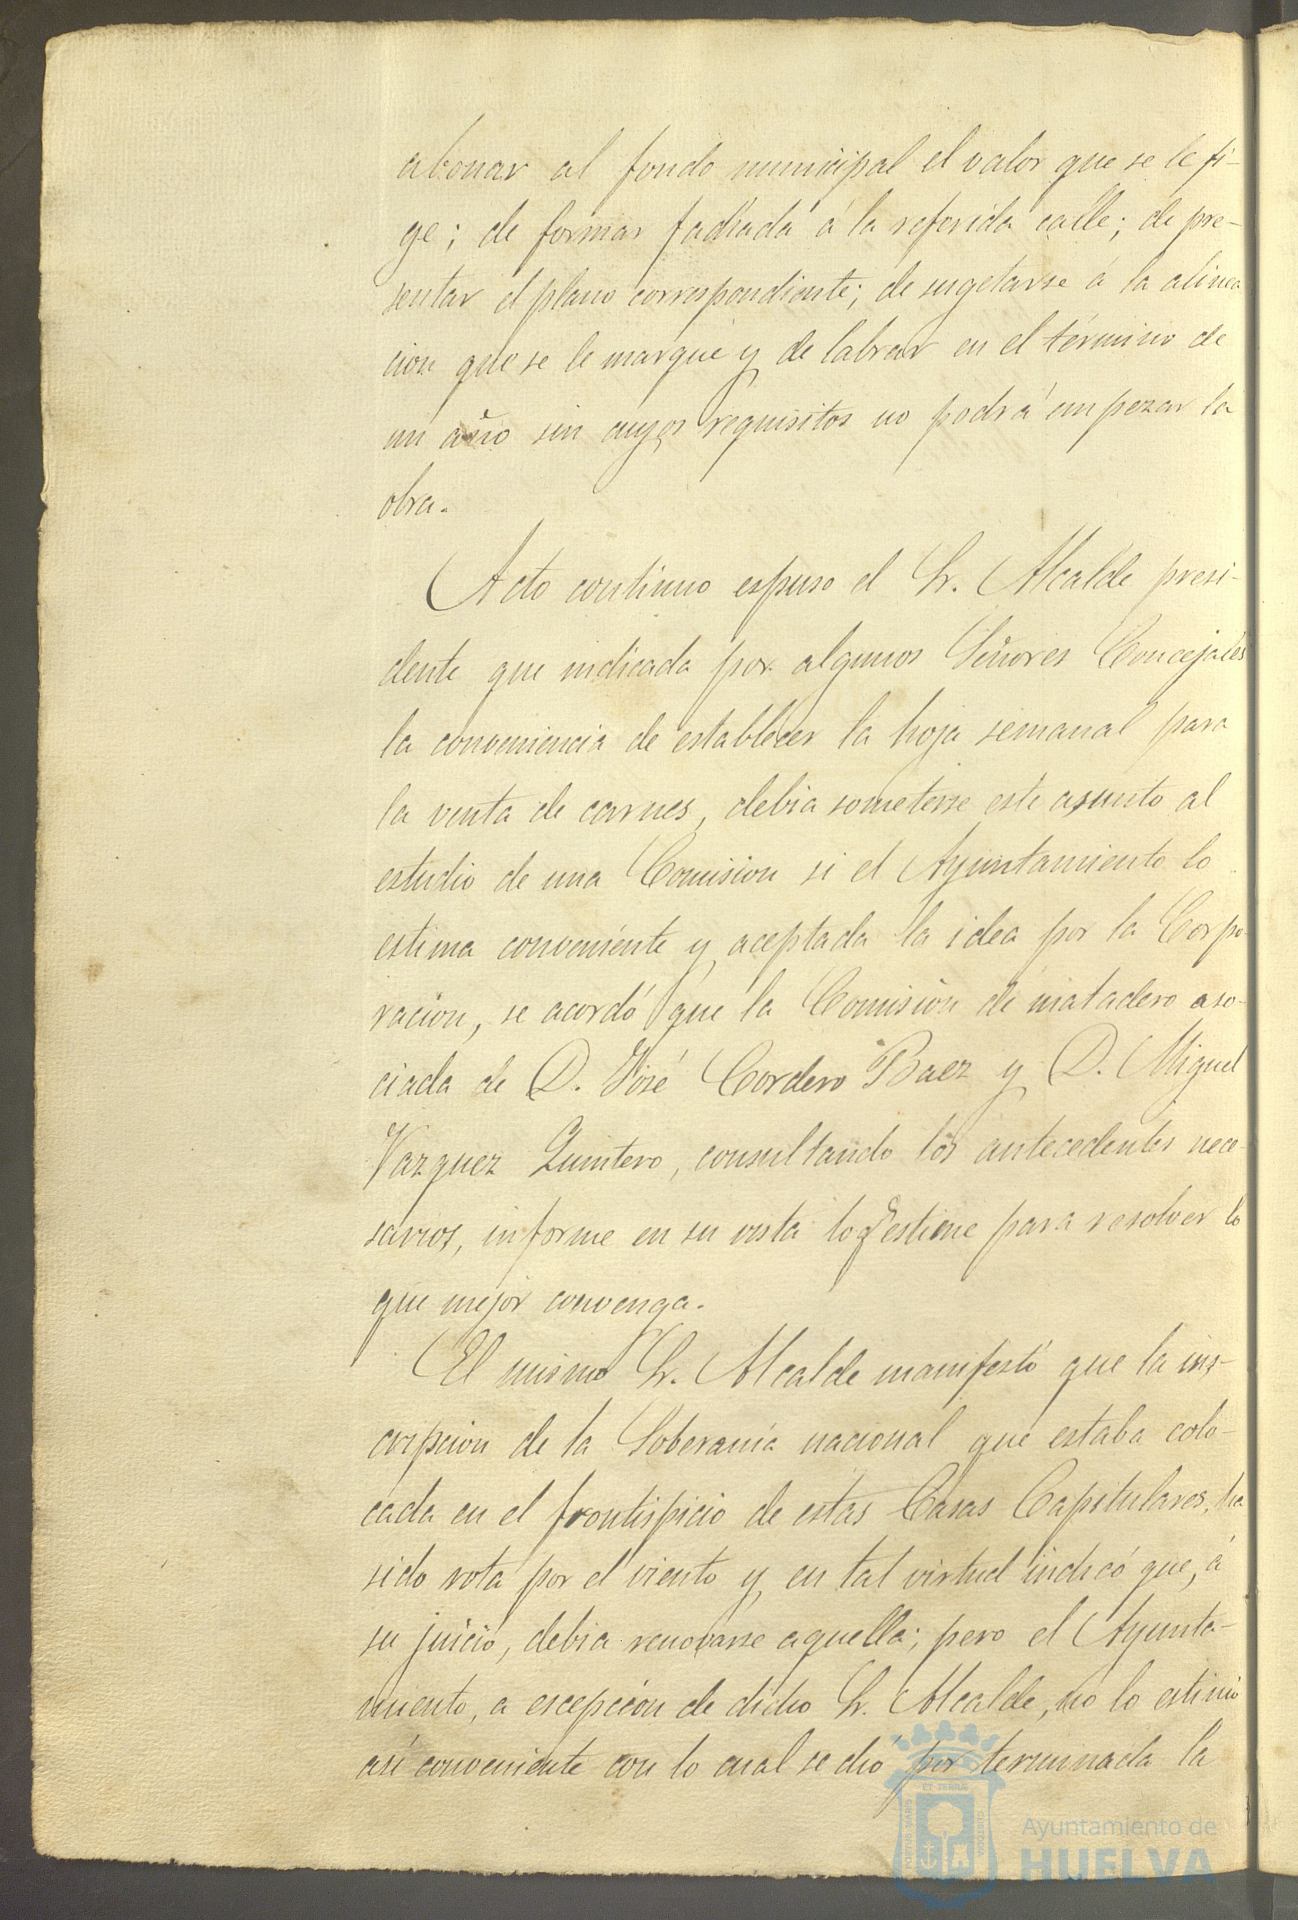 abonar al fondo municipal el valor que se le fi-
ge; de formar fachada á la referida calle; de pre-
sentar el plano correspondiente; de sugetarse á la alinea
cion que se le marque y de labrar en el término de
un año sin cuyos requisitos no podrá empezar la
obra.
Acto continuo espuso el Sr. Alcalde presi-
dente que indicada por algunos Señores Concejales
la conveniencia de establecer la hoja semanal para
la venta de carnes, debia someterse este asunto al
estudio de una Comision si el Ayuntamiento lo
estima conveniente y aceptada la idea por la Corpo-
racion, se acordó que la Comision de matadero aso-
ciada de D. José Cordero Baez y D. Miguel
Vazquez Quintero, consultando los antecedentes nece-
sarios, informe en su vista lo q. estime para resolver lo
que mejor convenga.
El mismo Sr. Alcalde manifestó que la ins-
cripcion de la Soberanía nacional que estaba colo-
cada en el frontispicio de estas Casas Capitulares, ha
sido rota por el viento y en tal virtud indicó que, á
su juicio, debia renovarse aquella; pero el Ayunta-
miento, a escepcion de dicho Sr. Alcalde, no lo estimó
asi conveniente con lo cual se dió por terminada la
Ayuntamiento de
HUELVA